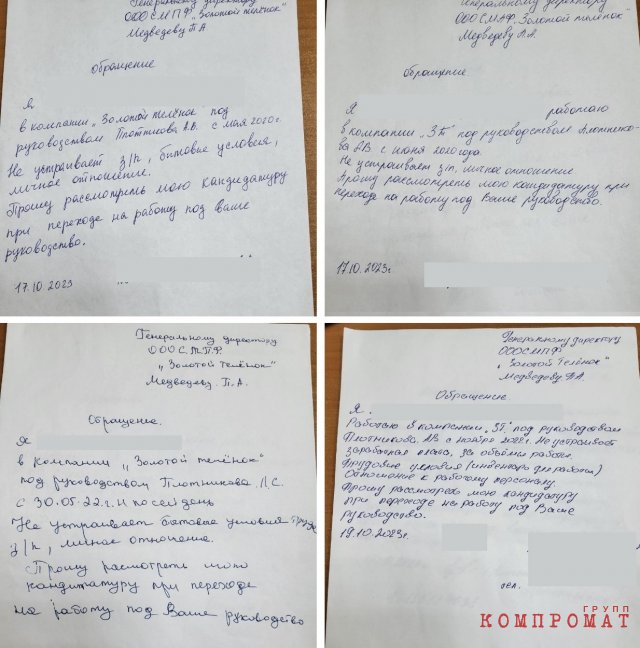 Генеральному директору
ООО СМПФ „Золотой телёнок"
Медведеву П.А
Обращение
Я
в компании „Золотой телёнок" под
руководством Плотникова А.В. с мая 2020г.
Не устраивает з/п, бытовые условия,
личное отношение.
Прошу рассмотреть мою кандидатуру
при переходе на работу под ваше
руководство.
17.10.2023
Генеральному директору
ООО СМПФ „Золотой телёнок"
Медведеву П.А.
Обращение
Я работаю
в компании „ЗТ" под руководством Плотнико-
ва А.В. с июня 2020 года.
Не устраивает з/п, личное отношение.
Прошу рассмотреть мою кандидатуру при
переходе на работу под Ваше руководство.
17.10.2023г.
Генеральному директору
ООО С.М.П.Ф.
„Золотой телёнок"
Медведеву. П.А.
Обращение.
Я
в компании „Золотой телёнок"
под руководством Плотникова Л.С.
с 30.05.22.г.н по сей день
Не устраивает бытовые условия
з/п, личное отночение.
Прошу расмотреть мою
кандитатуру при переходе
на работу под Ваше руководство
Генеральному директору
ООО С М П Ф
„Золотой Телёнок"
Медведеву П.А.
Обращение
Я.
Работаю в компании „ЗТ" под руководством
Плотникова. А.В с ноября 2022г. Не устраивает
заработная плата, за объёмы работы.
Трудовые условия (инвентарь для работы)
Отношение к рабочему персоналу.
Прошу рассмотреть мою кандидатуру
при переходе на работу под Ваше
руководство.
19.10.2023г.
тел.
ГРУПП
КОМПРОМАТ